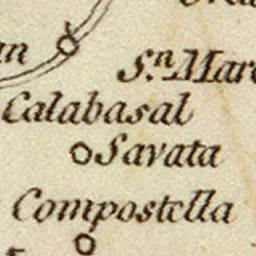 Sn. Mar
Calabasal
Savata
Compostella